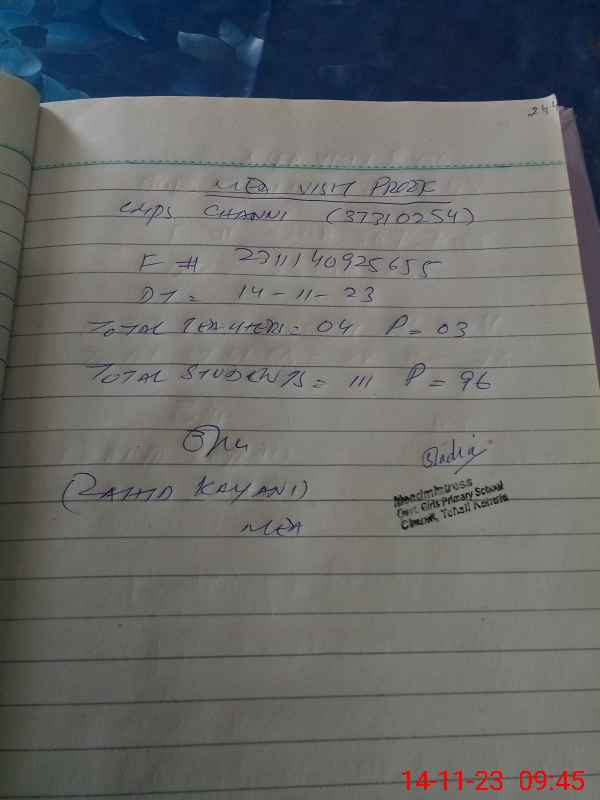 241
MEA VISIT PROOF
GMPS CHANNI (37310254)
F # 2311140925655
DT = 14-11-23
TOTAL TEACHERS = 04 P = 03
TOTAL STUDENTS = 111 P = 96
(ZAHID KAYANI)
MEA
Sadia
Headmistress
Govt. Girls Primary School
Channi, Tehsil Kahuta
14-11-23 09:45